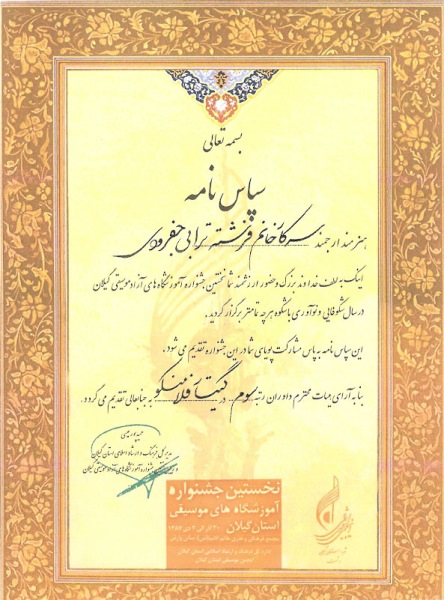 بسمه تعالی
سپاس نامه
هنرمند ارجمند سرکار خانم فرشته ترابی جفرودی
اینک به لطف خداوند بزرگ و حضور ارزشمند شما نخستین جشنواره آموزشگاه های آزاد موسیقی گیلان
در سال شکوفایی و نوآوری باشکوه هر چه تمامتر برگزار گردید .
این سپاس نامه به پاس مشارکت پویای شما در این جشنواره تقدیم می شود .
بنا به آرای هیات محترم داوران رتبه سوم در گیتار فلامنکو به جنابعالی تقدیم می گردد .
مدیر کل فرهنگ و ارشاد اسلامی استان گیلان
نخستین جشنواره
آموزشگاه های موسیقی
استان گیلان
اداره کل فرهنگ و ارشاد اسلامی استان گیلان
انجمن موسیقی استان گیلان